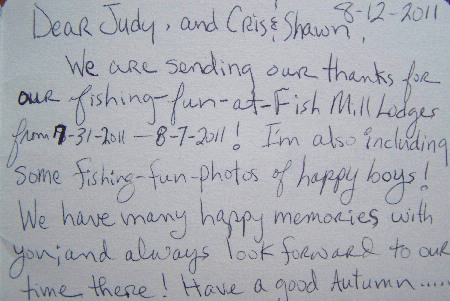 8-12-2011
Dear Judy, and Cris & Shawn,
We are sending our thanks for
our fishing-fun-at-Fish Mill Lodges
from 7-31-2011 — 8-7-2011! I'm also including
some fishing-fun-photos of happy boys!
We have many happy memories with
you; and always look forward to our
time there! Have a good Autumn.....